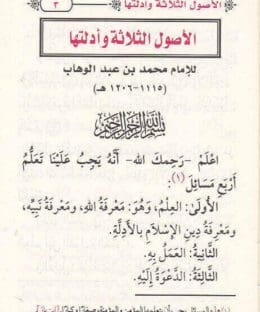 الأصول الثلاثة وأدلتها ٣
الأصول الثلاثة وأدلتها
للإمام محمد بن عبد الوهاب
(١١١٥-١٢٠٦ هـ)
بسم الله الرحمن الرحيم
اعْلَمْ -رَحِمَكَ الله- أَنَّهُ يَجِبُ عَلَيْنَا تَعَلُّمُ
أَرْبَعِ مَسَائِلَ (١):
الأُولَىٰ: العِلْمُ، وَهُوَ: مَعْرِفَةُ اللهِ، وَمَعْرِفَةُ نَبِيِّهِ،
وَمَعْرِفَةُ دِينِ الإِسْلَامِ بِالأَدِلَّةِ.
الثَّانِيَةُ: العَمَلُ بِهِ.
الثَّالِثَةُ: الدَّعْوَةُ إِلَيْهِ.